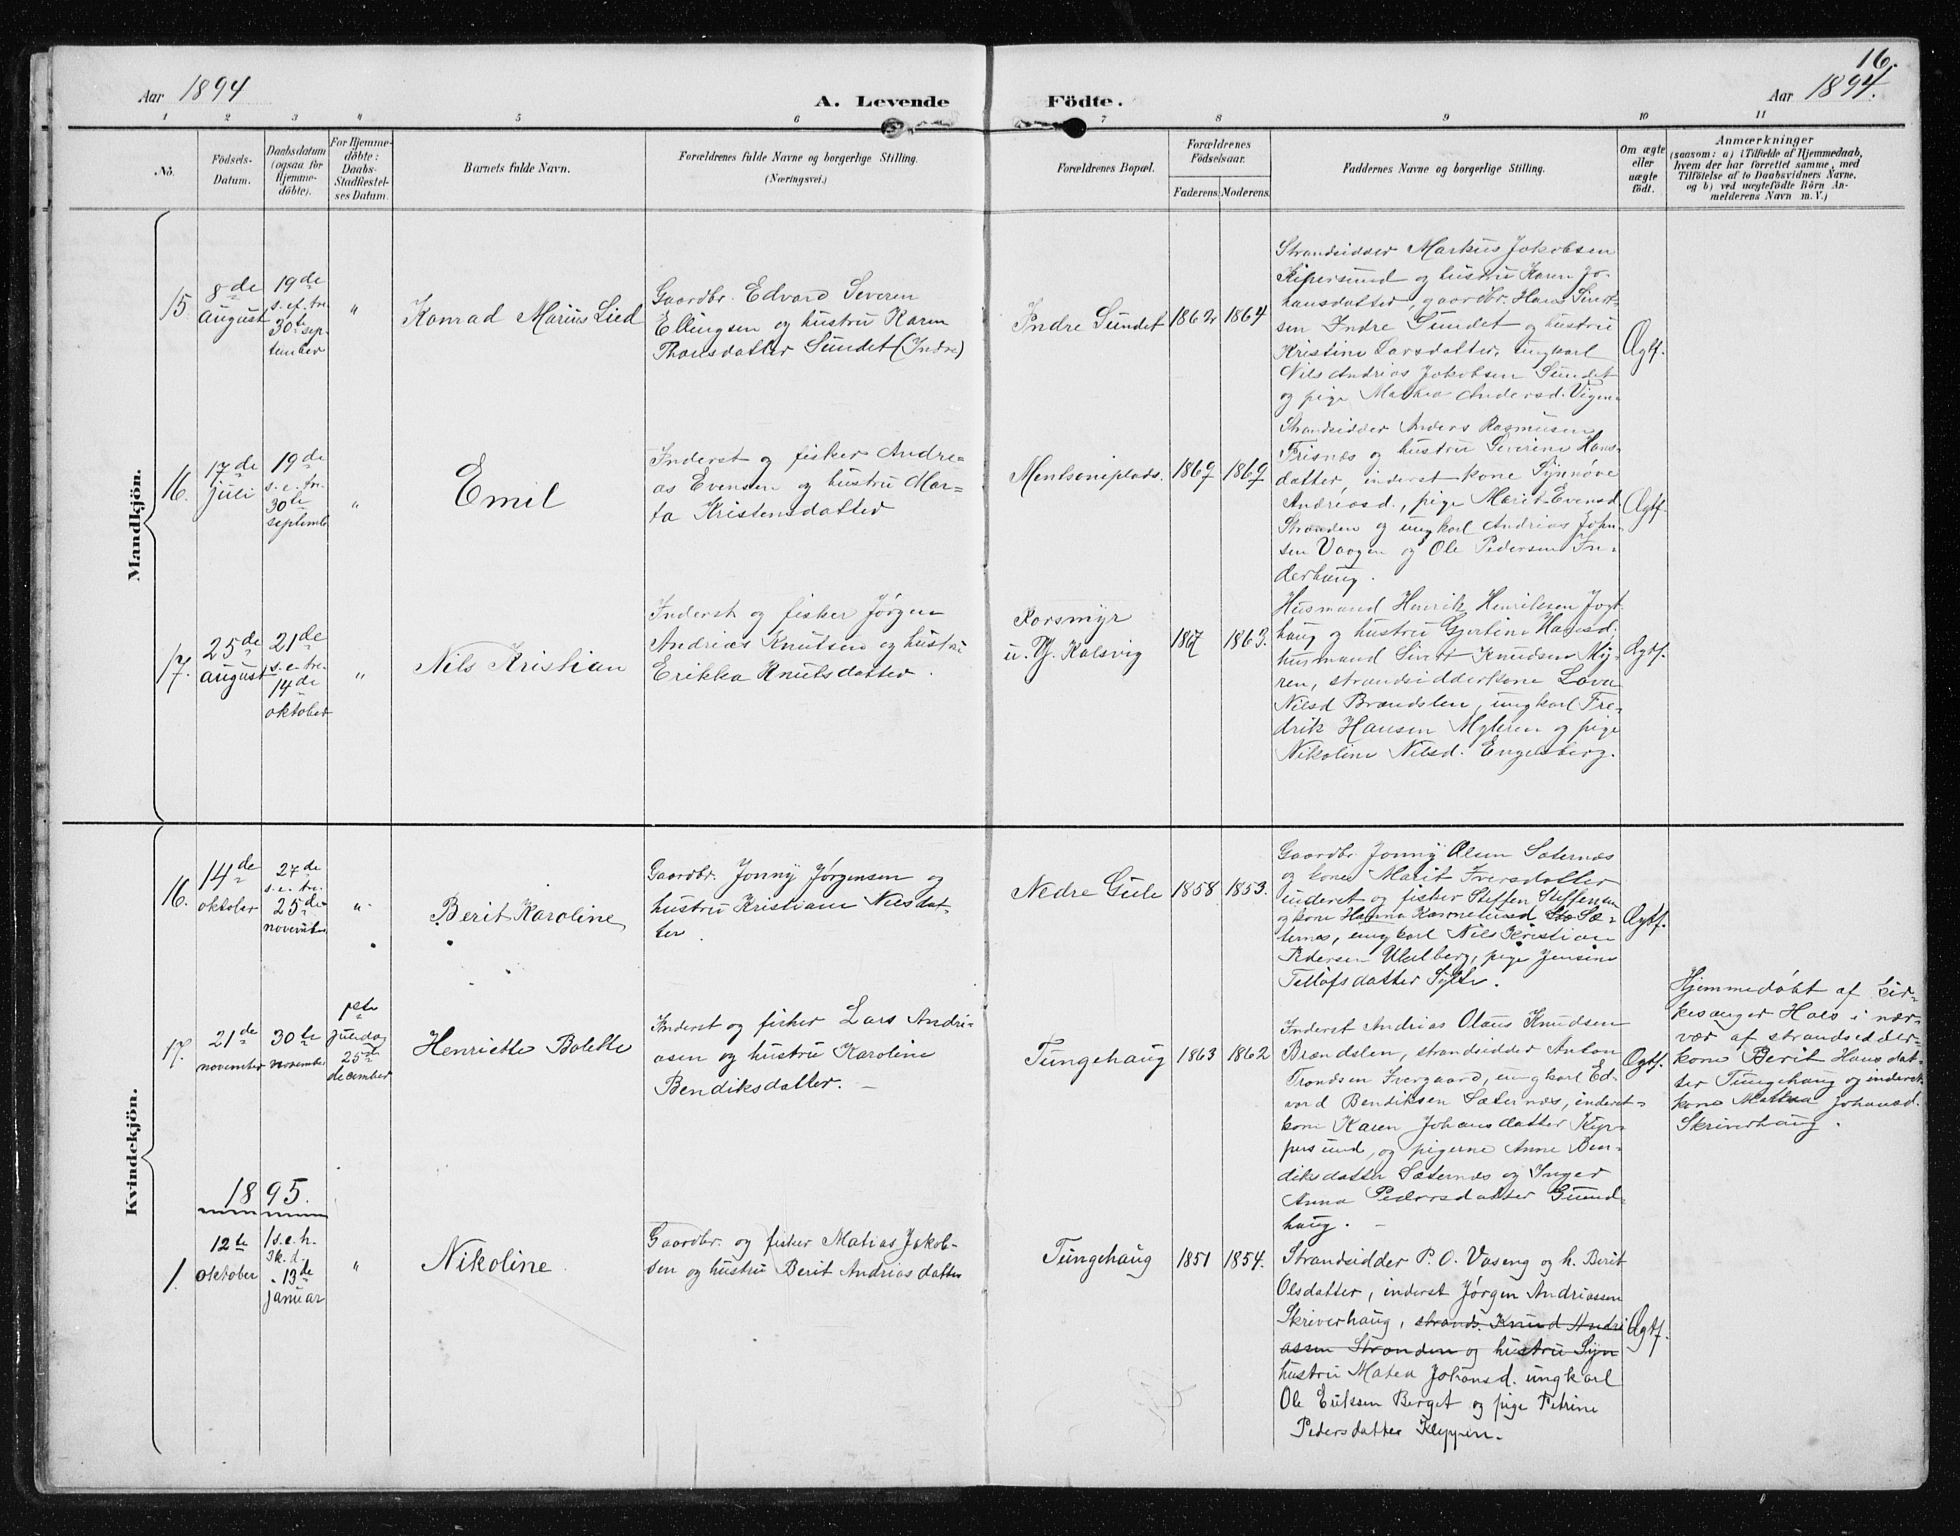 16.
Aar 1894
A. Levende Födte.
Aar 1894.
1 2 3 4 5 6 7 8 9 10 11
No.
Födsels-
Datum.
Daabsdatum
(ogsaa for
Hjemme-
döbte).
For Hjemme-
döbte:
Daabs-
Stadfæstel-
ses Datum.
Barnets fulde Navn.
Forældrenes fulde Navne og borgerlige Stilling.
(Næringsvei.)
Forældrenes Bopæl.
Forældrenes
Födselsaar.
Faderens. Moderens.
Faddernes Navne og borgerlige Stilling.
Om ægte
eller
uægte
födt.
Anmærkninger
(saasom: a) i Tilfælde af Hjemmedaab,
hvem der har forrettet samme, med
Tilföielse af to Daabsvidners Navne,
og b) ved uægtefödte Börn An-
melderens Navn m. V.)
Mandkjön.
15
8de
august
19de
s. e. f. tre.
30te sep-
tember
"
Konrad Marius Lied
Gaardbr. Edvard Severen
Ellingsen og hustru Karen
Thomsdatter Sundet (Indre)
Indre Sundet
1862
1864
Strandsidder Markus Jakobsen
Kipersund og hustru Karen Jo-
hansdatter, gaardbr. Hans Sivert-
sen Indre Sundet og hustru
Kristine Larsdatter, ungkarl
Nils Andrias Jakobsen Sundet
og pige Mathea Andersd. Vigen-
Ægtf.
16.
17de
juli
19de
s. e. tre.
30te
septemb.
"
Emil
Inderst og fisker Andre-
as Evensen og hustru Mar-
ta Kristensdatter
Mentsoniplads.
1869
1869
Strandsidder Anders Rasmusen
Frisnæs og hustru Severine Hans-
datter, inderst kone Synnøve
Andriasd., pige Marit Evensd.
Stranden og ungkarl Andrias John-
sen Vaagen og Ole Pedersen In-
derhaug.
Ægtf.
17.
25de
august
21de
s. e. tre.
14de
oktober
"
Nils Kristian
Inderst og fisker Jørgen
Andrias Knutsen og hustru
Erikka Knutsdatter.
Korsmyr
u. Kalsvig
1867
1863.
Husmand Henrik Henriksen Jogt-
haug og hustru Gjertine Hansd.
husmand Sivert Knudsen My-
ren, strandsidderkone Lova
Nilsd Brændslen, ungkarl Fre-
drik Hansen Myhren og pige
Nikoline Nilsd. Engelsberg.
Ægtf.
Kvindekjön.
16.
14de
oktober
27de
s. e. tre.
25de
november
"
Berit Karoline
Gaardbr. Jonny Jørgensen og
hustru Kristiane Nilsdat-
ter.
Nedre Gule
1858
1853.
Gaardbr. Jonny Olsen Sæternæs
og kone Marit Iversdatter
inderst og fisker Steffen Steffensen
og kone Hanna Sæ-
ternæs, ungkarl Nils Kristian
Pedersen Ulelberg, pige Jensine
Tellofsdatter Sylte.
Ægtf.
17.
21de
november
30te
november
Juledag
25de
december
Henriette Bolette
Inderst og fisker Lars Andri-
asen og hustru Karoline
Bendiksdatter. —
Tungehaug
1863
1862
Inderst Andrias Olaus Knudsen
Brændslen, strandsidder Anton
Trondsen Ivergaard, ungkarl Ed-
vard Bendiksen Sæternæs, inderst-
kone Karen Johansdatter Kip-
persund, og pigerne Anne Ben-
diksdatter Sæternæs og Inger
Anna Pedersdatter Gund-
haug. —
Ægtf.
Hjemmedøbt af kir-
kesanger Hals i nær-
vær af strandsidder-
kone Berit Hansdat-
ter Tungehaug og inderst-
kone Mathea Johansd.
Skriverhaug.
1895.
1.
12te
oktober
1 s. e. h.
3k. d.
13de
januar
"
Nikoline
Gaardbr. og fisker Matias Jakob-
sen og hustru Berit Andriasdatter
Tungehaug
1851
1854.
Strandsidder P. O. Vaseng og h. Berit
Olsdatter, inderst Jørgen Andriassen
Skriverhaug, strands. Knud Andri
assen Stranden og hustru Syn
hustru Matea Johansd. ungkarl
Ole Eriksen Berget og pige Petrine
Pedersdatter Kleppen.
Ægtf.